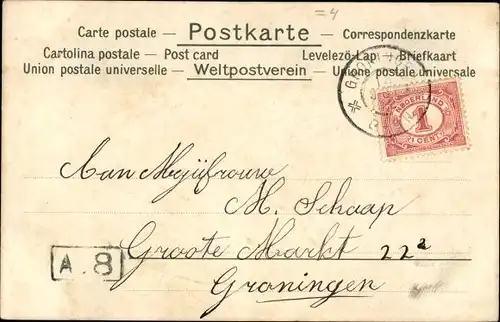 =4
Carte postale — Postkarte — Correspondenzkarte
Cartolina postale — Post card Levelezö-Lap — Briefkaart
Union postale universelle — Weltpostverein — Unione postale universale
NEDERLAND
1
1 CENT
Aan Mejüfrouw
M. Schaap
Groote Markt 22a
Groningen
A. 8